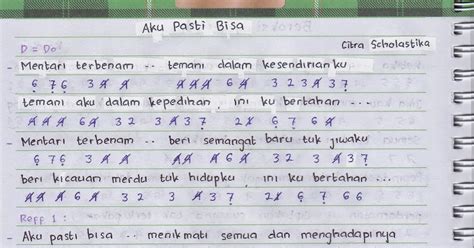 Aku Pasti Bisa
D = Do
Citra Scholastika
- Mentari terbenam .. temani dalam kesendirianku
6 7 6 3 4 4 4 4 4 6 4 3 2 3 4 3 7
temani aku dalam kepedihan , ini ku bertahan ...
4 4 4 6 4 2 3 4 3 7 2 1 6 7 6 4
- Mentari terbenam .. beri semangat baru tuk jiwaku
6 7 6 3 4 4 4 4 4 6 4 3 2 3 4 3 7
beri kicauan merdu tuk hidupku , ini ku bertahan ...
4 4 4 6 4 3 2 3 4 3 7 2 1 6 7 6 6
Reff 1 :
- Aku pasti bisa .. menikmati semua dan menghadapinya